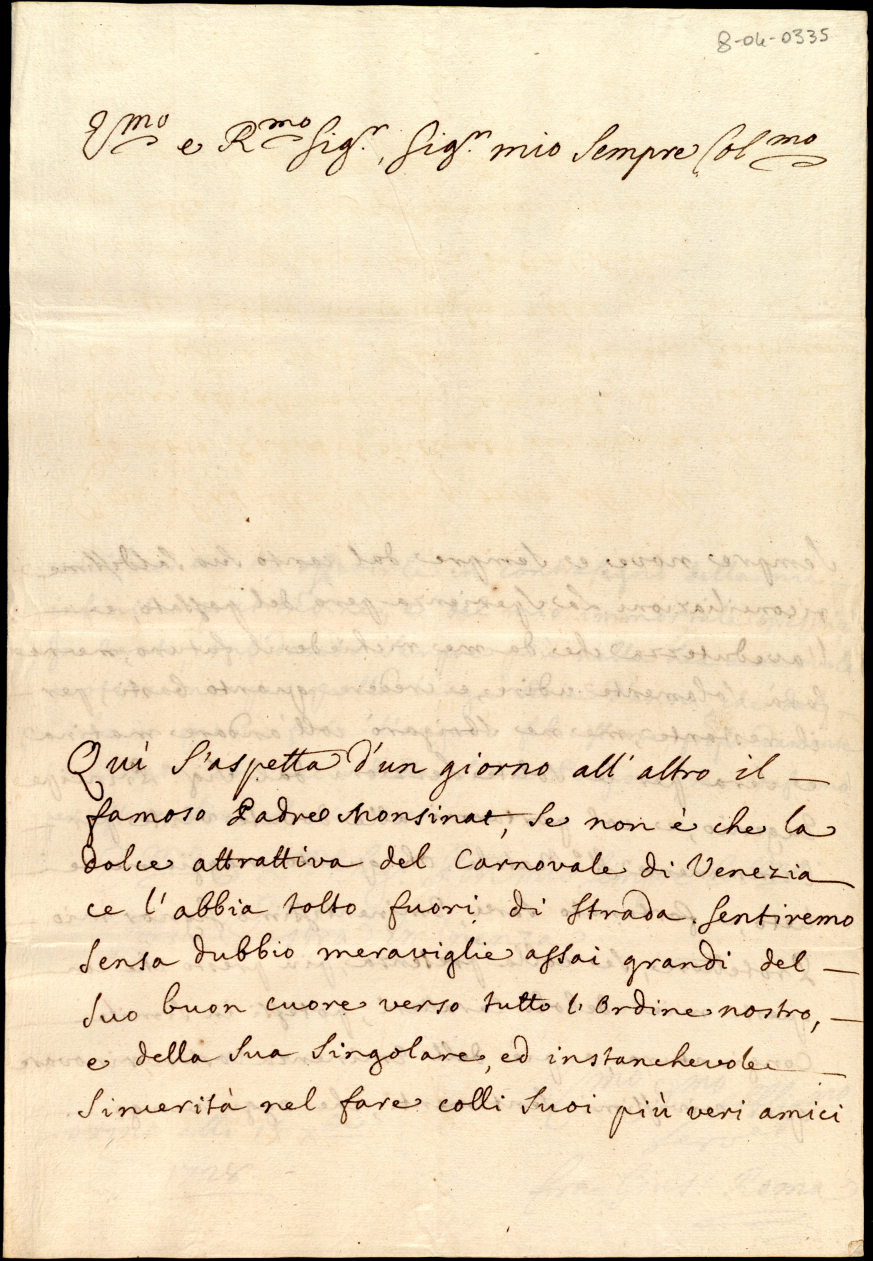 8-04-0335
Ill^mo e R^mo Sig^r, Sig^r mio Sempre Col^mo
Quì S'aspetta d'un giorno all'altro il —
famoso Padre Monsinat, Se non è che la
dolce attrattiva del Carnovale di Venezia
ce l'abbia tolto fuori di Strada. Sentiremo
Sensa dubbio meraviglie assai grandi del —
Suo buon cuore verso tutto l'Ordine nostro, —
e della Sua Singolare, ed instanchevole —
Sincerità nel fare colli Suoi più veri amici